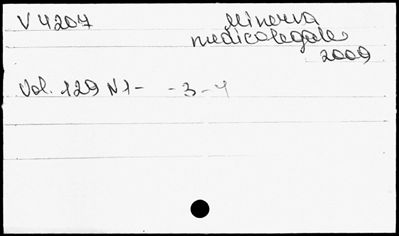 V 4207
Minerva
medicolegale
2009
Vol. 129 N 1- - 3 - 4